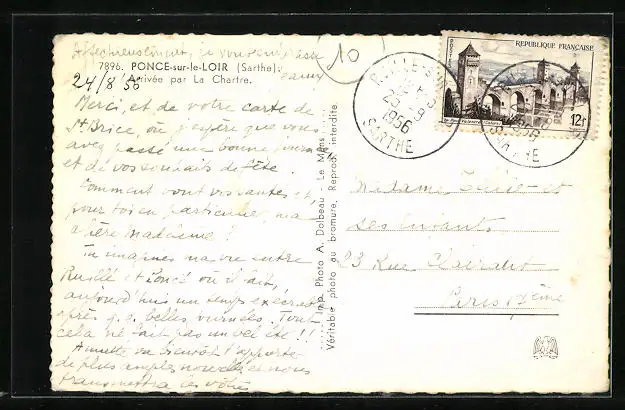 Affectueusement, je vous embrasse
10
7896. PONCE-sur-le-LOIR (Sarthe):
Arrivée par La Chartre.
24/8 56
Merci, et de votre carte de
St Brice, où j'espère que vous
avez passé une bonne journée
et de vos souhaits de fête.
Comment vont vos santés et,
pour toi en particulier, ma
chère Madeleine ?
Tu imagines ma vie entre
Ruillé et Poncé où il fait,
aujourd'hui un temps exécrable
après q.q. belles journées. Tout
cela ne fait pas un bel été !!
va bientôt t'apporter
de plus amples nouvelles et nous
transmettra les vôtres
Imp. Photo A. Dolbeau - Le Mans
Véritable photo au bromure. Reprod. interdite.
REPUBLIQUE FRANÇAISE
POSTES
12F
1956
SARTHE
Madame et
Ses Enfants
23 Rue Clairaut
Paris 17ème